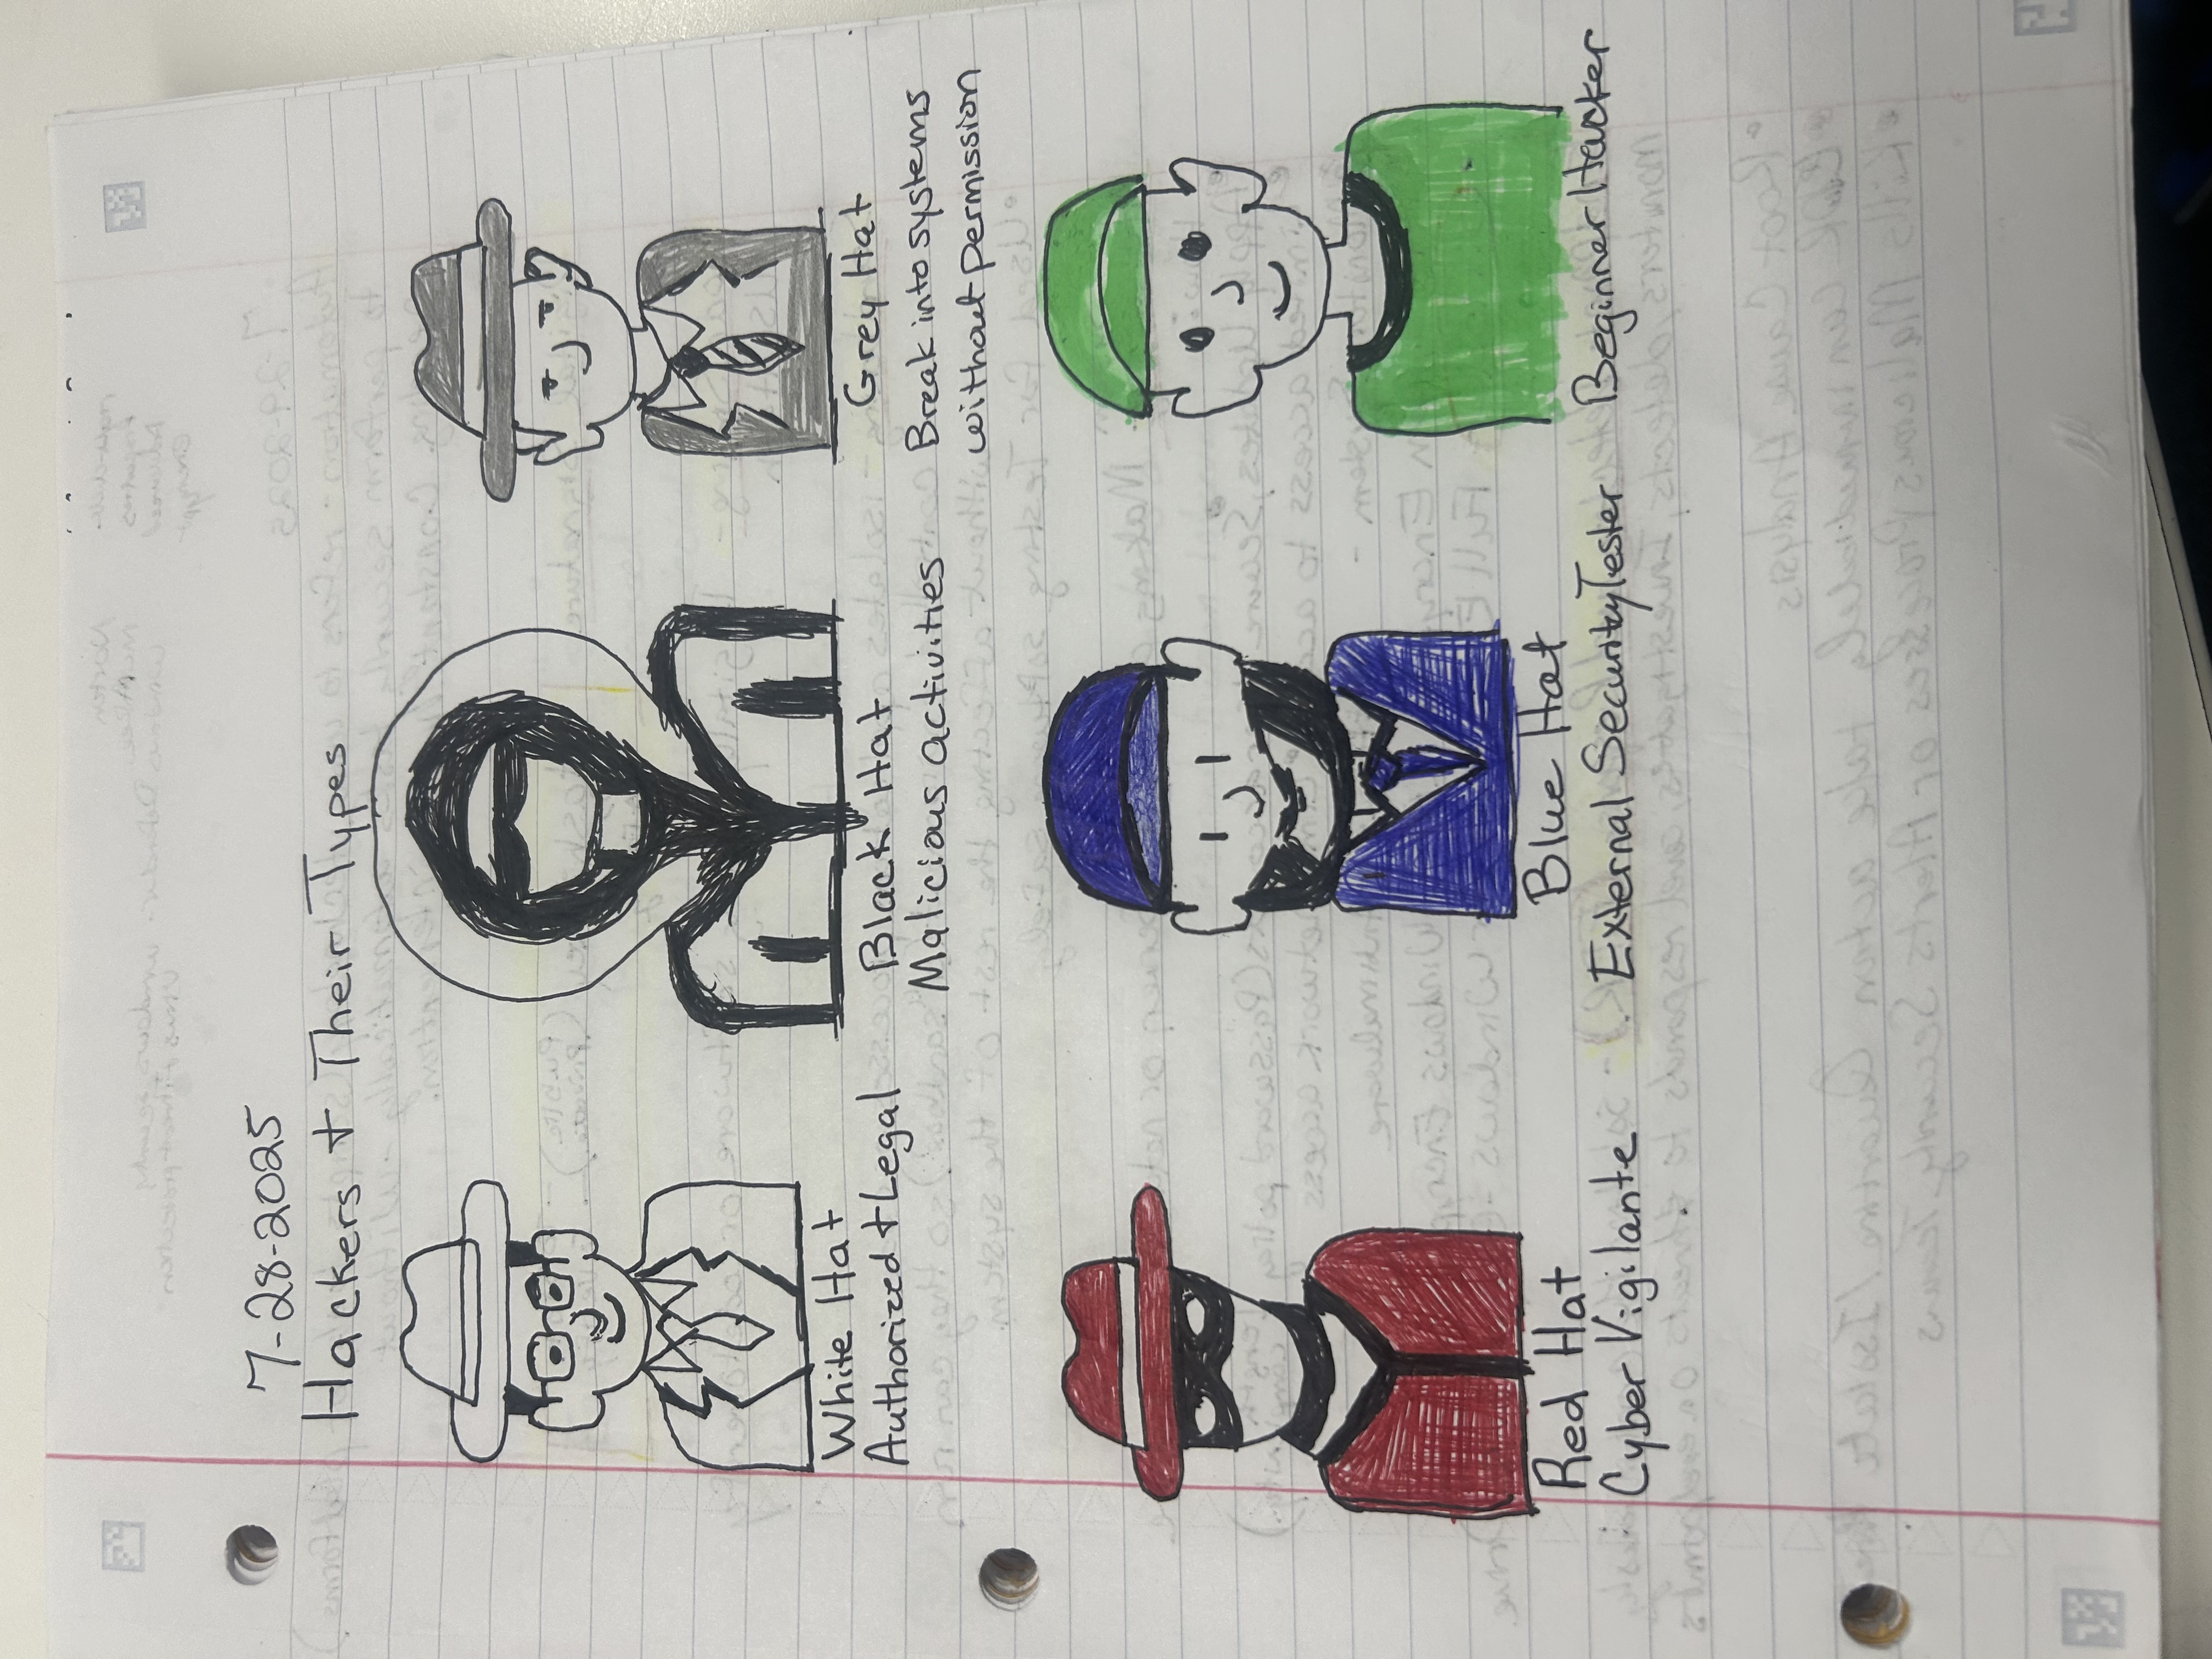 7-28-2025
Hackers + Their Types
White Hat
Authorized + Legal
Black Hat
Malicious activities
Grey Hat
Break into systems
without permission
Red Hat
Cyber Vigilante
Blue Hat
External Security Tester
Beginner Hacker